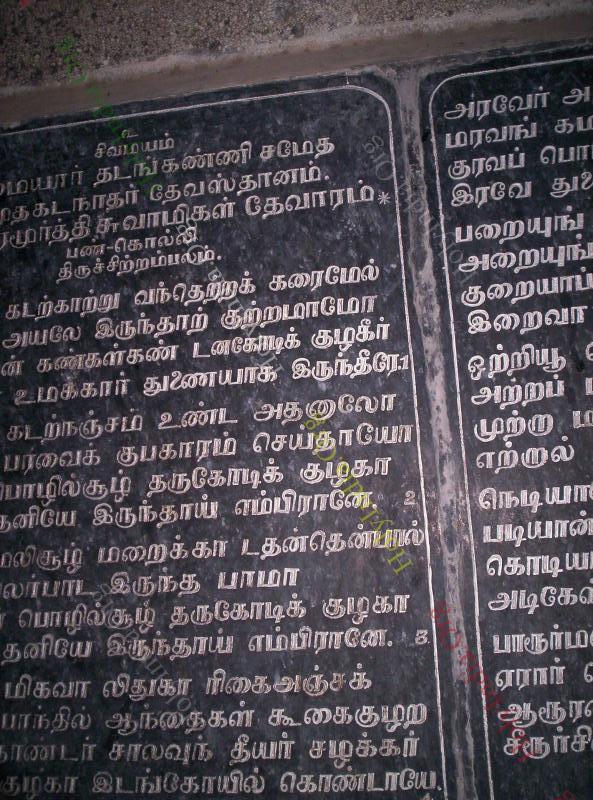 உ
சிவமயம்
மையார் தடங்கண்ணி சமேத
முதகடநாதர் தேவஸ்தானம்.
ரமூர்த்திசுவாமிகள் தேவாரம்*
பண்-கொல்லி
திருச்சிற்றம்பலம்.
கடற்காற்று வந்தெற்றக் கரைமேல்
அயலே இருந்தாற் குற்றமாமோ
ன் கணகளகண் டனகோடிக் குழகீர்
உமக்கார் துணையாக இருந்தீரே.1
கடற்நஞ்சம் உண்ட அதனாலோ
பரவைக் குபகாரம் செயதாயோ
பொழில்சூழ் தருகோடிக் குழகா
தனியே இருந்தாய் எம்பிரானே. 2
மலிசூழ் மறைக்கா டதன்தென்பால்
லர்பாட இருந்த பாமா
பொழில்சூழ் தருகோடிக் குழகா
தனியே இருந்தாய் எம்பிரானே. 3
மிகவா லிதுகா ரிகைஅஞ்சக்
பொந்தில ஆந்தைகள் கூகைகுழற
தொண்டர் சாலவுந் தீயர் சழக்கர்
குழகா இடங்கோயில் கொண்டாயே.
அரவேர் அ
மரவங் கம
குரவப் பொ
இரவே துணை
பறையுங்
அறையுங்
குறையாப்
இறைவா
ஒற்றியூ
அற்றப்
முற்றா ம
எற்றால்
நெடியா
படியான்
கொடியா
அடிகேள்
பாரூர்ம
ஏரார்
ஆரூர
சீரூர்சி